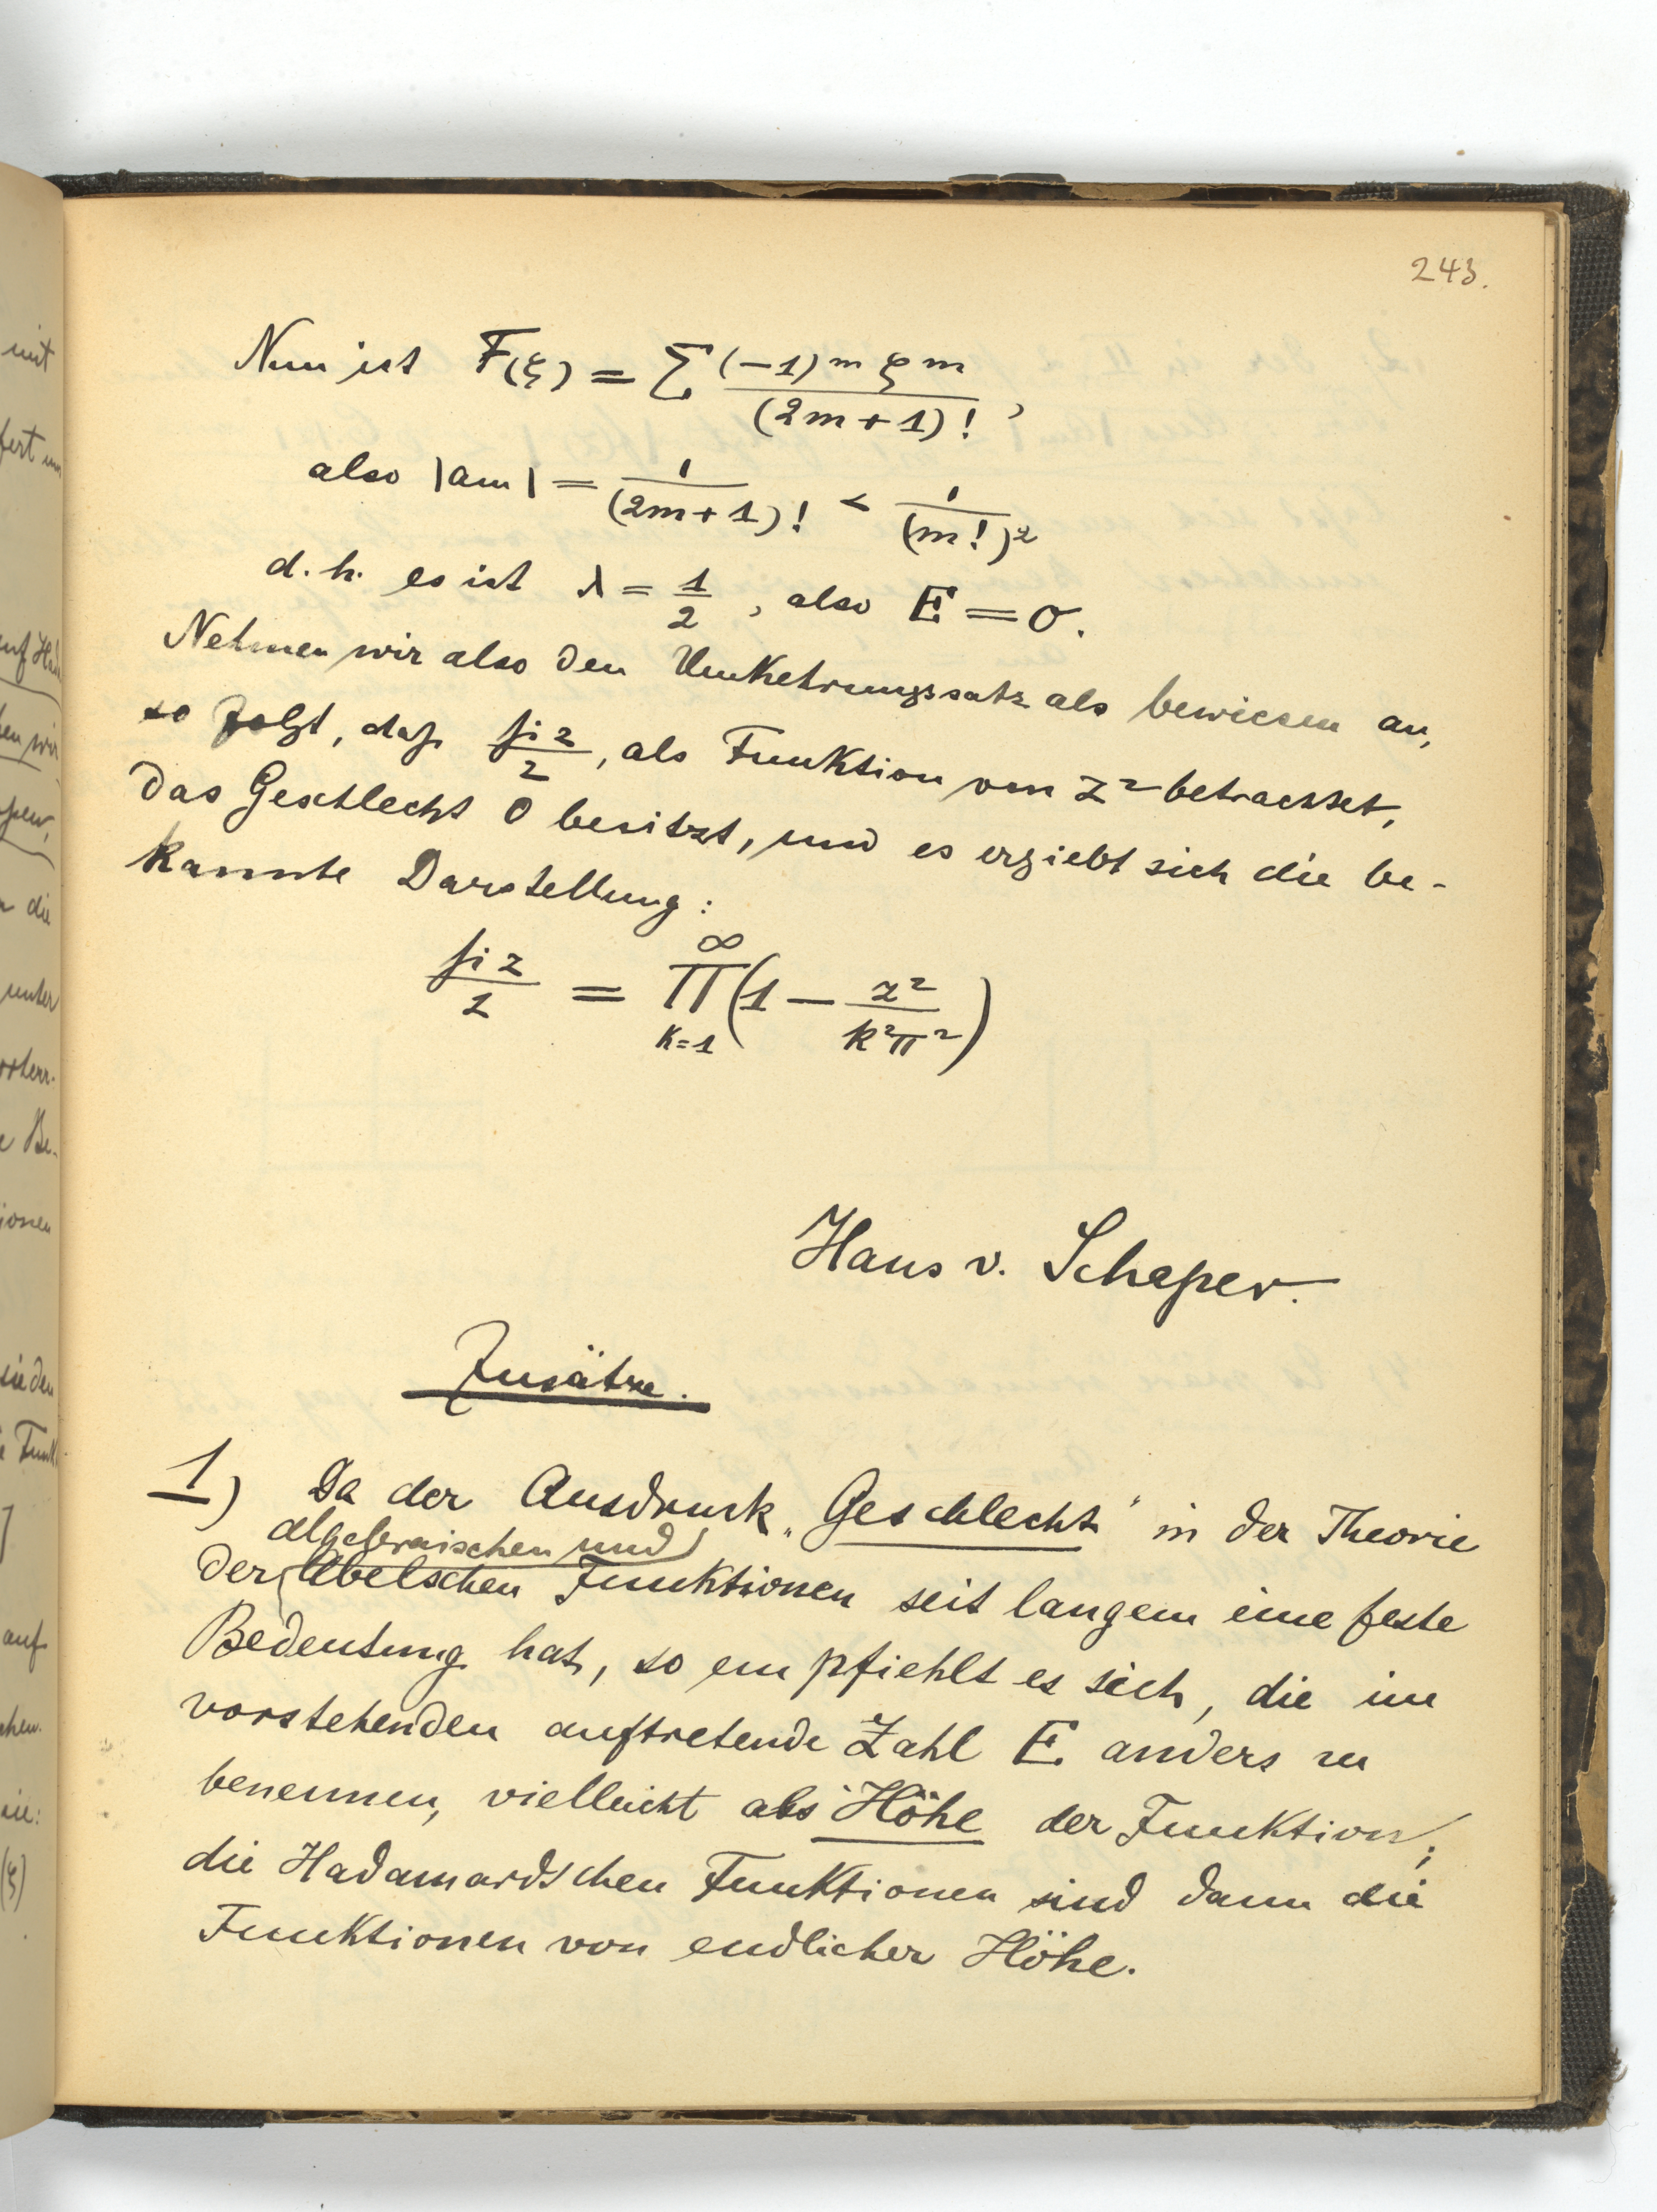 243.
Nun ist F(ξ) = Σ (-1)^m ξ^m / (2m+1)! ,
also |am| = 1/(2m+1)! < 1/(m!)²
d.h. es ist λ = 1/2 , also E = 0.
Nehmen wir also den Umkehrungssatz als bewiesen an,
so folgt, daß si z/z , als Funktion von z² betrachtet,
das Geschlecht 0 besitzt, und es ergiebt sich die be-
kannte Darstellung:
si z/z = ∞ Π k=1 (1 − z²/k²π²)
Hans v. Schaper.
Zusätze.
1) Da der Ausdruck „Geschlecht" in der Theorie
algebraischen und
der Abelschen Funktionen seit langem eine feste
Bedeutung hat, so empfiehlt es sich, die im
vorstehenden auftretende Zahl E anders zu
benennen, vielleicht als Höhe der Funktion;
die Hadamardschen Funktionen sind dann die
Funktionen von endlicher Höhe.